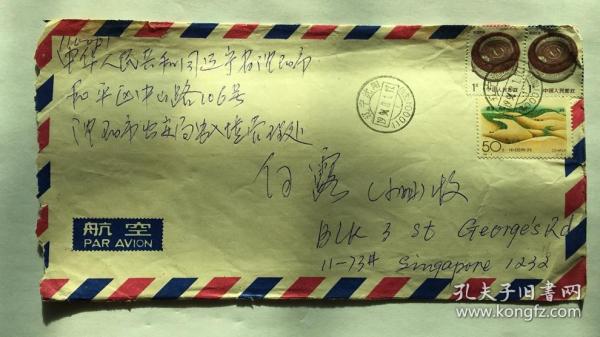 110001
中华人民共和国辽宁省沈阳市
和平区中山路106号
沈阳市公安局出入境管理处
白露 (小姐)收
BLK 3 St George's Rd
11-73# Singapore 1232
航空
PAR AVION
1元
中国人民邮政
中国人民邮政
50分
孔夫子旧书网
www.kongfz.com